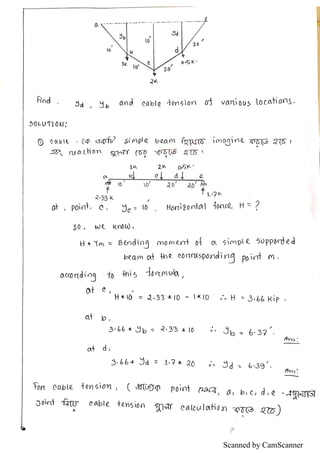 a
e
y_b
10'
y_d
b
d
20'
10'
1k
10'
c
20'
0.5k.
2k
Find . y_d , y_b and cable tension of various locations.
SOLUTION:
simple beam imagine
reaction
1k 2k 0.5k
a b c d e
10' 10' 20' 20'
2.33 k
1.7k
at . point. c. y_c = 10 , Horizontal force, H = ?
so, we know.
H * Ym = Bending moment of a simple supported
beam at the corresponding point m.
according to this formula,
at c,
H * 10 = 2.33 * 10 - 1*10 ∴ H = 3.66 kip.
at b,
3.66 * y_b = 2.33 * 10 ∴ y_b = 6.37'.
Ans:
at d,
3.66 * y_d = 1.7 * 20 ∴ y_d = 6.39'.
Ans:
For cable tension, ( point a, b, c, d, e
joint cable tension calculation )
Scanned by CamScanner